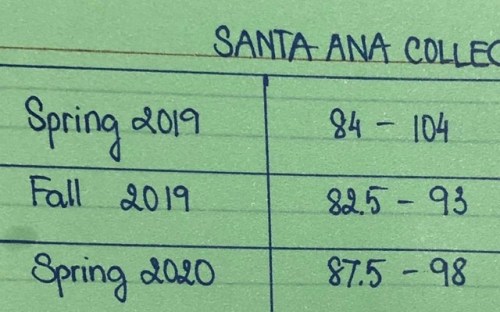 SANTA ANA COLLEC
Spring 2019 84 - 104
Fall 2019 82.5 - 93
Spring 2020 87.5 - 98